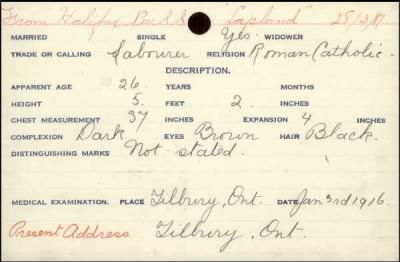 From Halifax Per S.S. "Lapland" 28/3/17
MARRIED SINGLE Yes. WIDOWER
TRADE OR CALLING Labourer RELIGION Roman Catholic.
DESCRIPTION.
APPARENT AGE 26 YEARS MONTHS
HEIGHT 5. FEET 2. INCHES
CHEST MEASUREMENT 37 INCHES EXPANSION 4 INCHES
COMPLEXION Dark EYES Brown HAIR Black.
DISTINGUISHING MARKS Not stated.
MEDICAL EXAMINATION. PLACE Tilbury, Ont. DATE Jan 3rd 1916.
Present Address Tilbury, Ont.